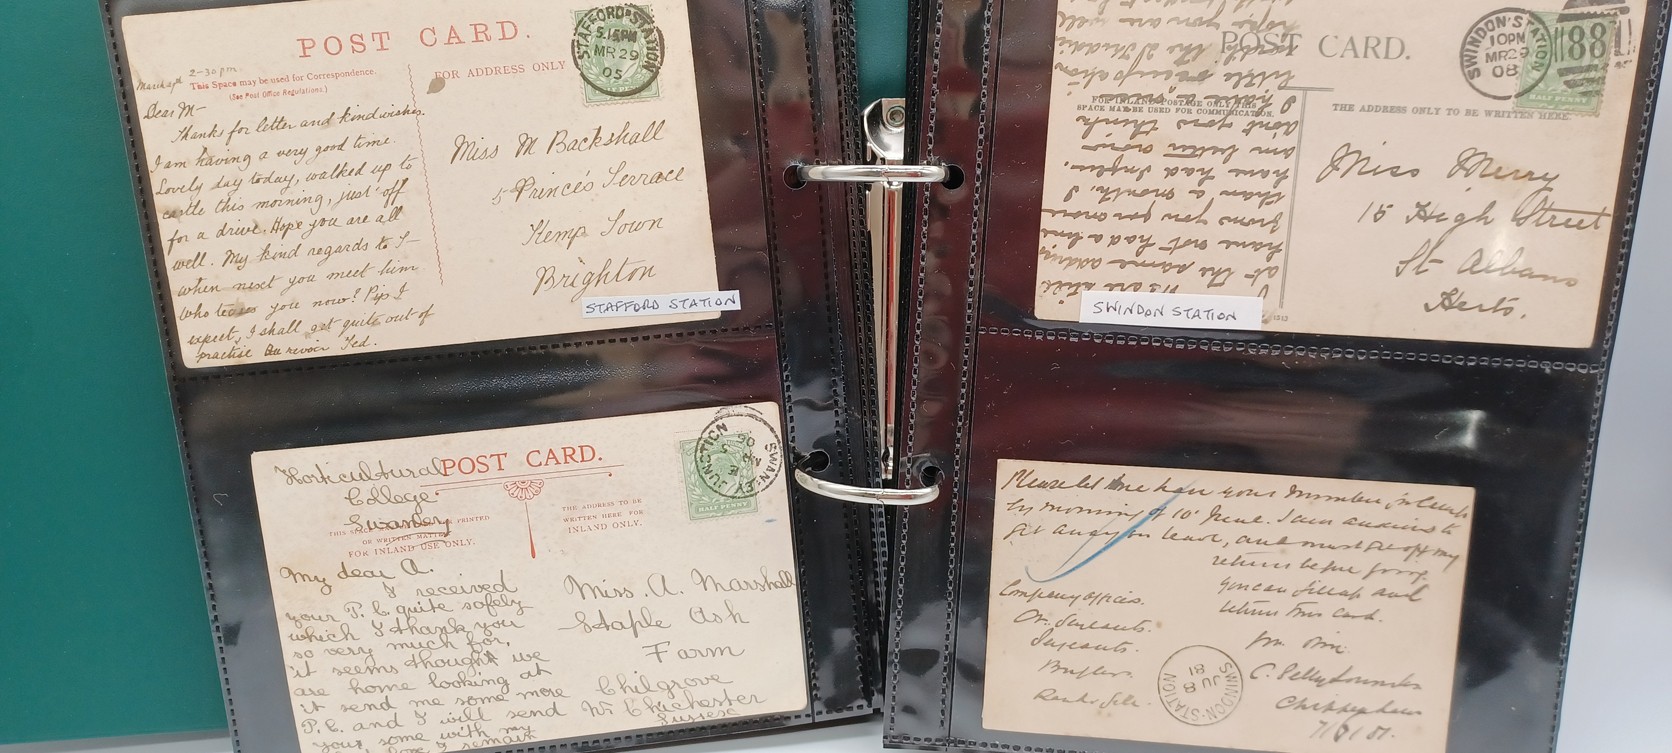 POST CARD.
March 29th 2-30 pm
This Space may be used for Correspondence.
(See Post Office Regulations.)
FOR ADDRESS ONLY
STAFFORD·STATION
5.15PM
MR 29
05
HALF PENNY
Dear M—
Thanks for letter and kind wishes.
I am having a very good time.
Lovely day today, walked up to
castle this morning, just off
for a drive. Hope you are all
well. My kind regards to T—
when next you meet him
who teases you now? Pip I
expect, I shall get quite out of
practise Au revoir Ted.
Miss M Backshall
5 Prince's Terrace
Kemp Town
Brighton
STAFFORD STATION
POST CARD.
SWINDON·STATION
10PM
MR 29
08
88
HALF PENNY
FOR INLAND POSTAGE ONLY THIS
SPACE MAY BE USED FOR COMMUNICATION.
THE ADDRESS ONLY TO BE WRITTEN HERE.
at the same address
have not had a line
from you for more
than a month. I
have had
am better now
dont you think
Miss Merry
15 High Street
St Albans
Herts.
SWINDON STATION
Horticultural
College
Swanley
POST CARD.
THIS SPACE PRINTED
OR WRITTEN MATTER
FOR INLAND USE ONLY.
THE ADDRESS TO BE
WRITTEN HERE FOR
INLAND ONLY.
SWANLEY JUNCTION
06
HALF PENNY
My dear A.
I received
your P. C. quite safely
which I thank you
so very much for,
it seems though we
are home looking at
it send me some more
P. C. and I will send
you some with my
love & remain
Miss. A. Marshall
Staple Ash
Farm
Chilgrove
Nr Chichester
Sussex
Please let me have your
by morning of 10 June. I am anxious to
get away on leave, and must get off my
returns before going.
you can fill up and
return this card.
Company officers.
Or. Sergeants.
Sergeants.
Buglers
Rank & file.
C.
Chippenham
7/6/81.
SWINDON·STATION
JU 8
81